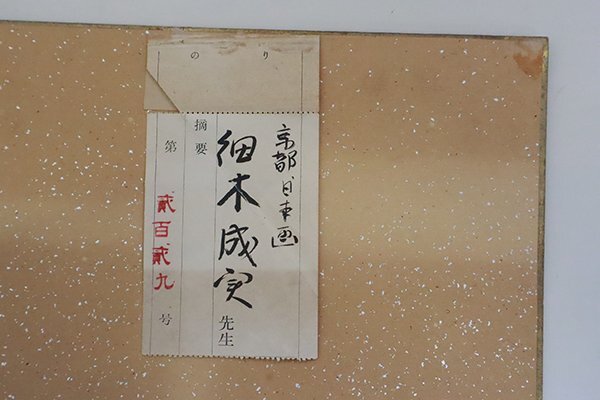 のり
京都日本画
細木成実先生
摘要
第貳百貳九号